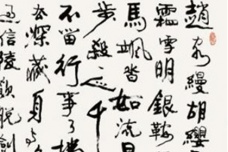 趙客縵胡纓
霜雪明銀鞍
馬颯沓如流星
步殺一千
不留行事了拂
去深藏身與
過信陵飲脫劍